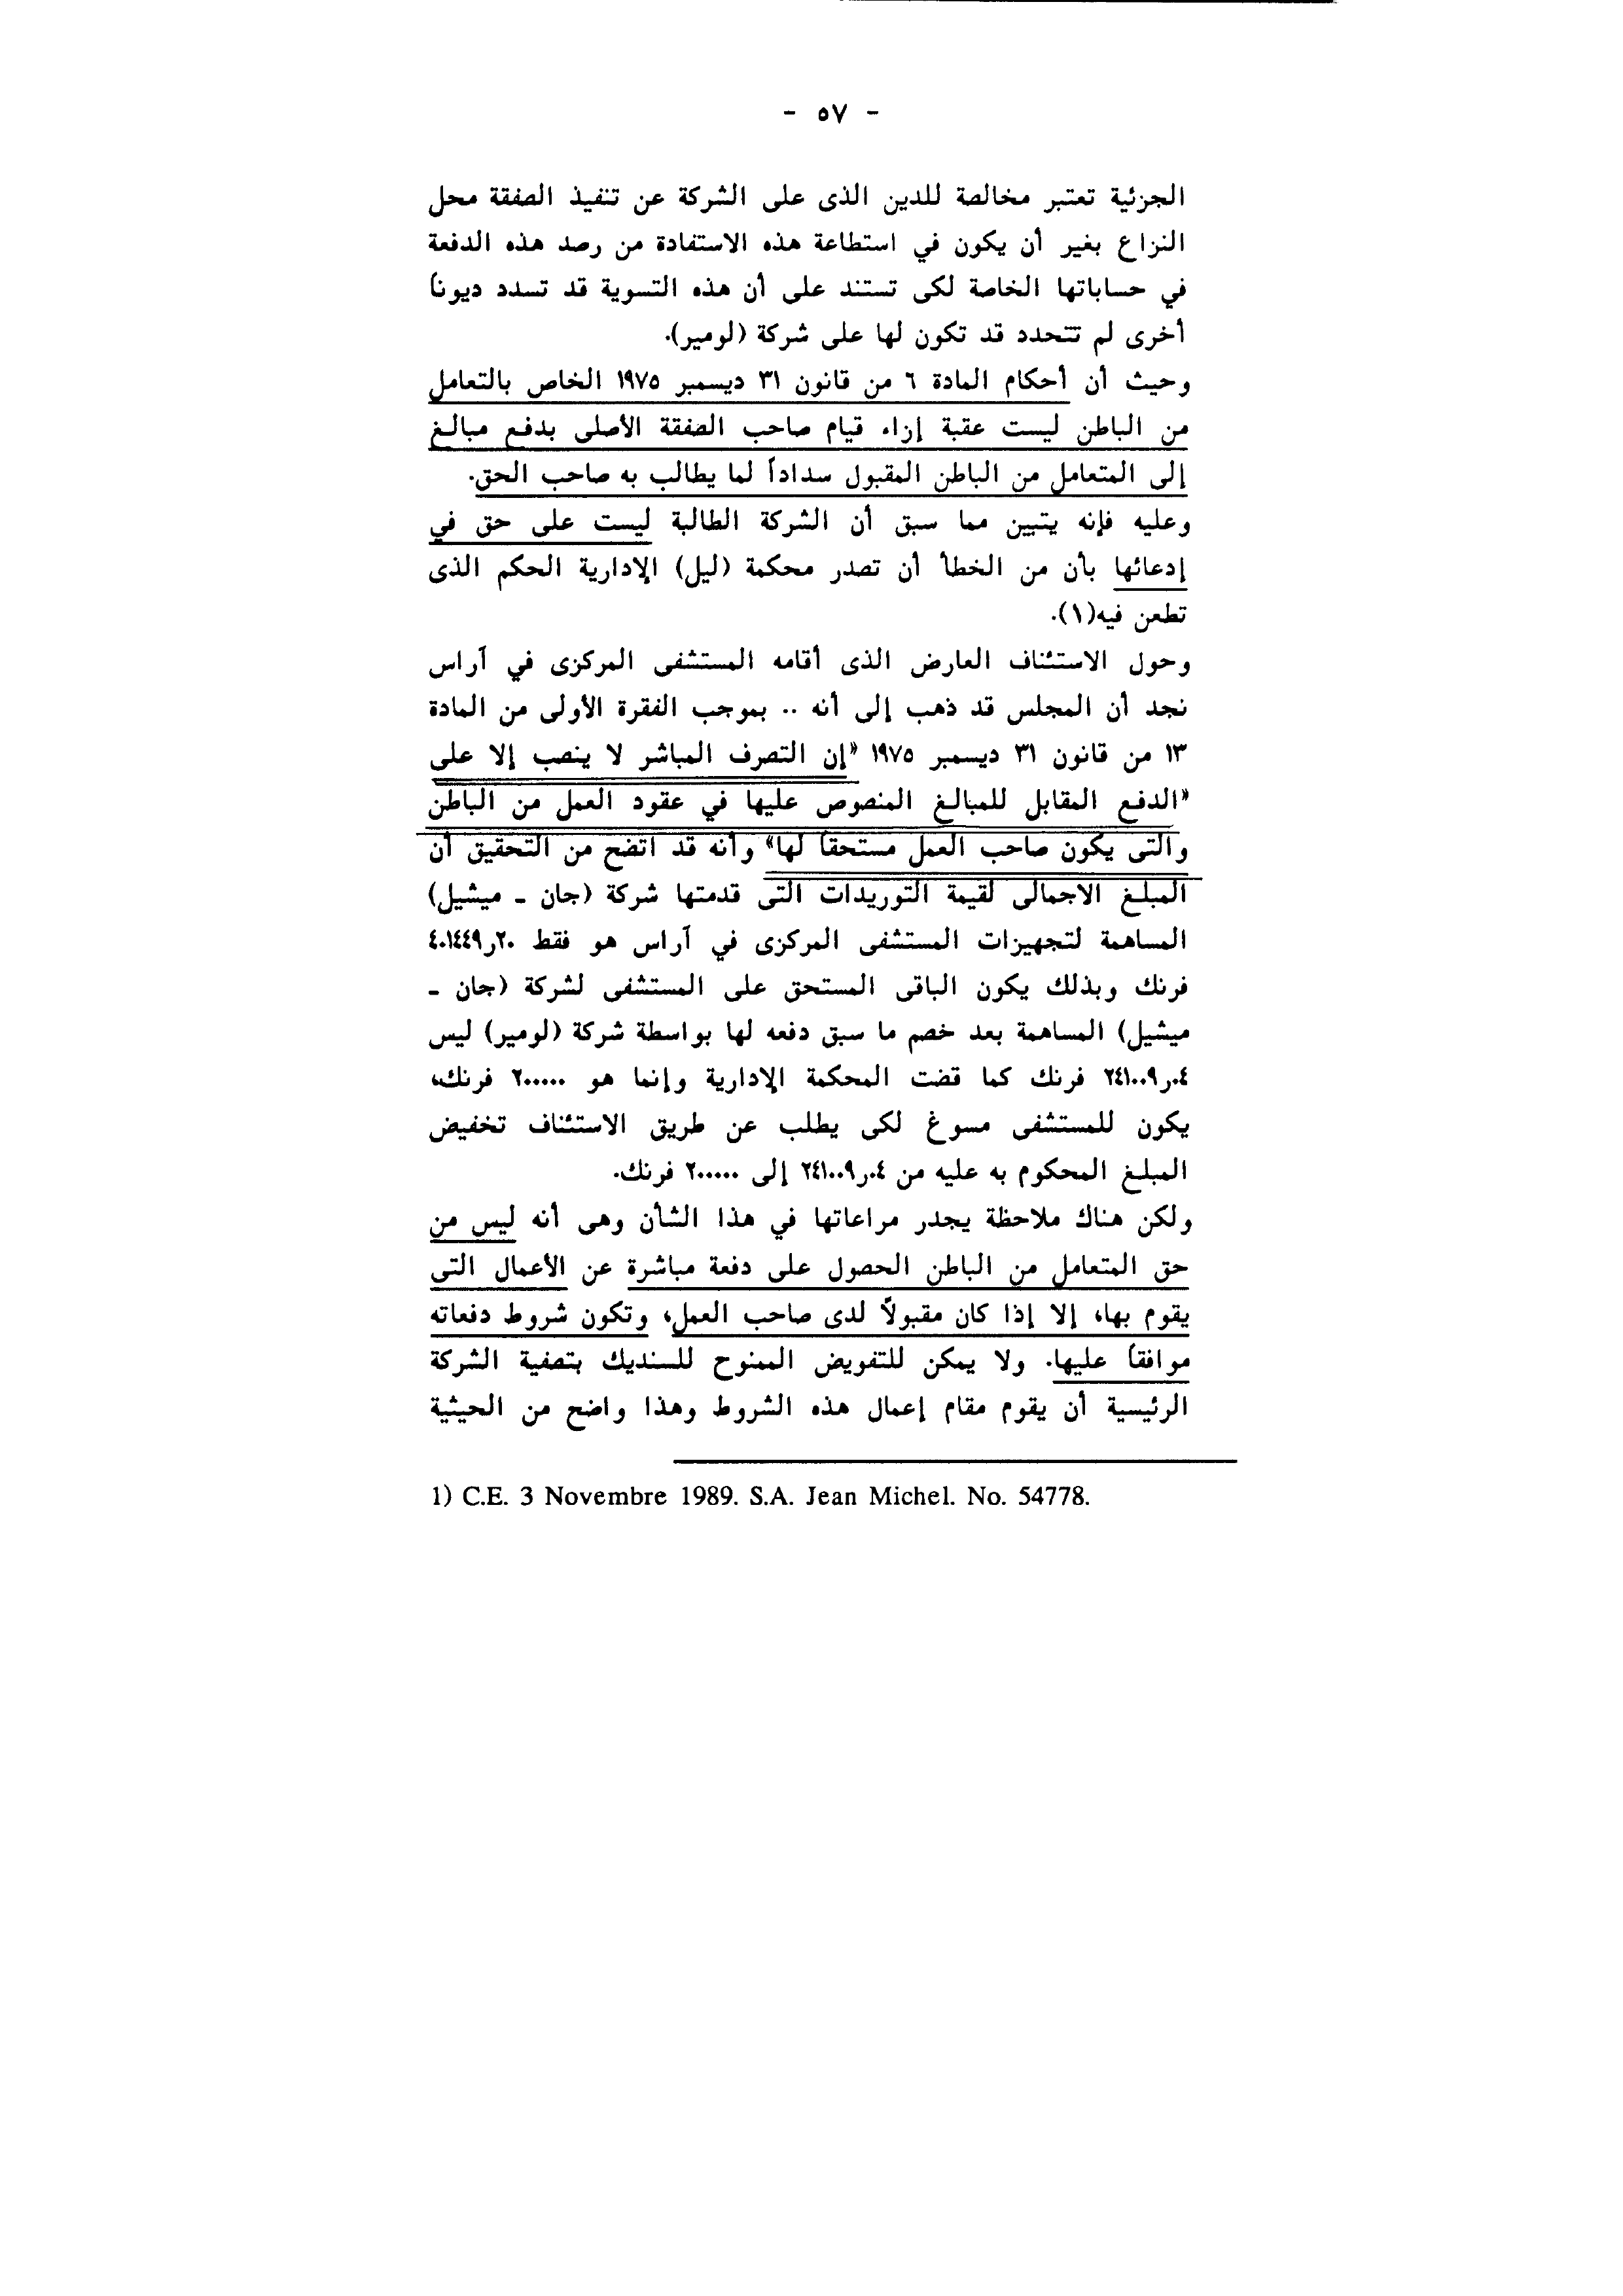 - ٥٧ -
الجزئية تعتبر مخالصة للدين الذى على الشركة عن تنفيذ الصفقة محل
النزاع بغير أن يكون في استطاعة هذه الاستفادة من رصد هذه الدفعة
في حساباتها الخاصة لكى تستند على أن هذه التسوية قد تسدد ديوناً
أخرى لم تتحدد قد تكون لها على شركة (لومير).
وحيث أن أحكام المادة ٦ من قانون ٣١ ديسمبر ١٩٧٥ الخاص بالتعامل
من الباطن ليست عقبة إزاء قيام صاحب الصفقة الأصلى بدفع مبالغ
إلى المتعامل من الباطن المقبول سداداً لما يطالب به صاحب الحق.
وعليه فإنه يتبين مما سبق أن الشركة الطالبة ليست على حق في
إدعائها بأن من الخطأ أن تصدر محكمة (ليل) الإدارية الحكم الذى
تطعن فيه(١).
وحول الاستئناف العارض الذى أقامه المستشفى المركزى في آراس
نجد أن المجلس قد ذهب إلى أنه .. بموجب الفقرة الأولى من المادة
١٣ من قانون ٣١ ديسمبر ١٩٧٥ «إن التصرف المباشر لا ينصب إلا على
«الدفع المقابل للمبالغ المنصوص عليها في عقود العمل من الباطن
والتى يكون صاحب العمل مستحقاً لها» وأنه قد اتضح من التحقيق أن
المبلغ الاجمالى لقيمة التوريدات التى قدمتها شركة (جان ـ ميشيل)
المساهمة لتجهيزات المستشفى المركزى في آراس هو فقط ٢٠ر٤٠١٤٤٩
فرنك وبذلك يكون الباقى المستحق على المستشفى لشركة (جان ـ
ميشيل) المساهمة بعد خصم ما سبق دفعه لها بواسطة شركة (لومير) ليس
٠٤ر٢٤١٠٠٩ فرنك كما قضت المحكمة الإدارية وإنما هو ٢٠٠٠٠٠ فرنك،
يكون للمستشفى مسوغ لكى يطلب عن طريق الاستئناف تخفيض
المبلغ المحكوم به عليه من ٠٤ر٢٤١٠٠٩ إلى ٢٠٠٠٠٠ فرنك.
ولكن هناك ملاحظة يجدر مراعاتها في هذا الشأن وهى أنه ليس من
حق المتعامل من الباطن الحصول على دفعة مباشرة عن الأعمال التى
يقوم بها، إلا إذا كان مقبولاً لدى صاحب العمل، وتكون شروط دفعاته
موافقاً عليها. ولا يمكن للتفويض الممنوح للسنديك بتصفية الشركة
الرئيسية أن يقوم مقام إعمال هذه الشروط وهذا واضح من الحيثية
1) C.E. 3 Novembre 1989. S.A. Jean Michel. No. 54778.